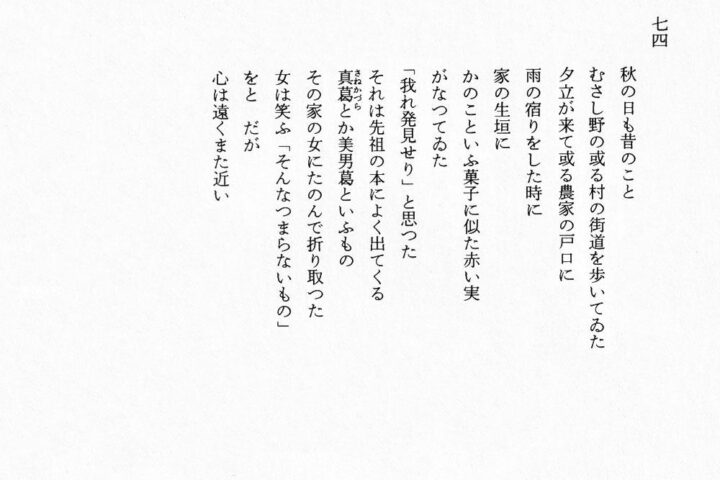 七四
秋の日も昔のこと
むさし野の或る村の街道を歩いてゐた
夕立が来て或る農家の戸口に
雨の宿りをした時に
家の生垣に
かのこといふ菓子に似た赤い実
がなつてゐた
「我れ発見せり」と思つた
それは先祖の本によく出てくる
真葛さねかづらとか美男葛といふもの
その家の女にたのんで折り取つた
女は笑ふ「そんなつまらないもの」
をと　だが
心は遠くまた近い